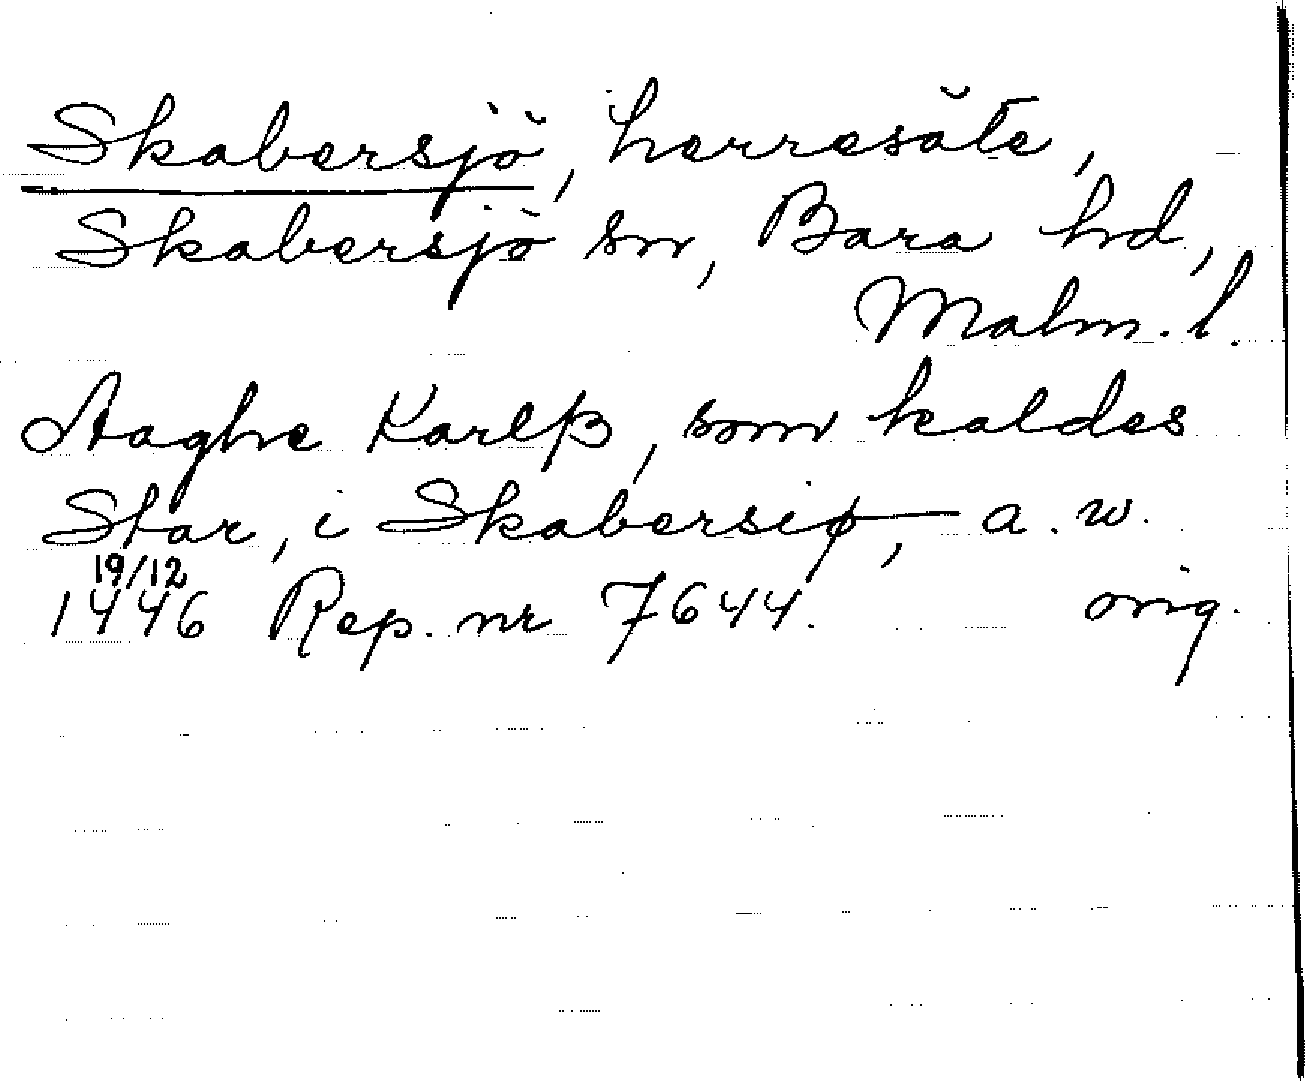 Skabersjö, herresäte,
Skabersjö sn, Bara hd,
Malm. l.
Aaghe Karlß, som kaldes
Star, i Skabersiø, a. w.
19/12
1446 Rep. nr 7644. orig.